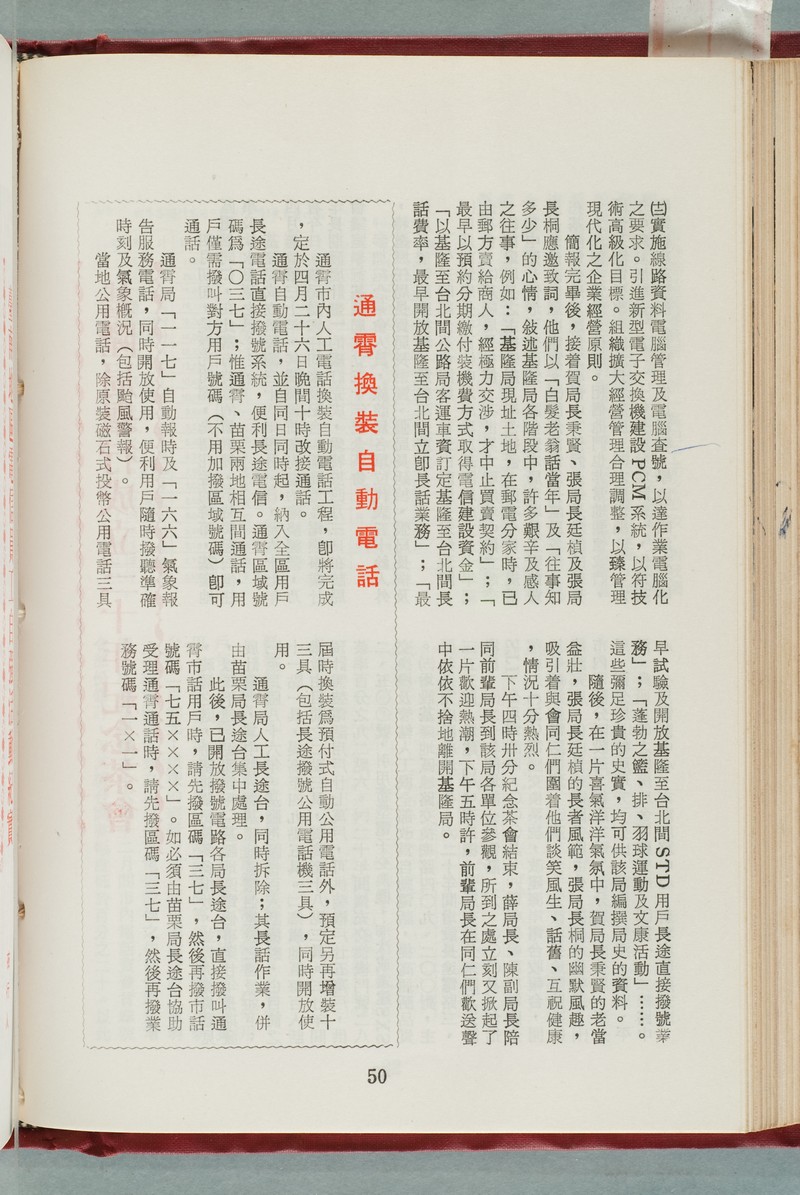 ㈦實施線路資料電腦管理及電腦查號，以達作業電腦化
之要求。引進新型電子交換機建設PCM系統，以符技
術高級化目標。組織擴大經營管理合理調整，以臻管理
現代化之企業經營原則。
簡報完畢後，接着賀局長秉賢、張局長廷楨及張局
長桐應邀致詞，他們以「白髮老翁話當年」及「往事知
多少」的心情，敍述基隆局各階段中，許多艱辛及感人
之往事，例如：「基隆局現址土地，在郵電分家時，已
由郵方賣給商人，經極力交涉，才中止買賣契約」；「
最早以預約分期繳付裝機費方式取得電信建設資金」；
「以基隆至台北間公路局客運車資訂定基隆至台北間長
話費率，最早開放基隆至台北間立卽長話業務」；「最
早試驗及開放基隆至台北間STD用戶長途直接撥號業
務」；「蓬勃之籃、排、羽球運動及文康活動」……。
這些彌足珍貴的史實，均可供該局編撰局史的資料。
隨後，在一片喜氣洋洋氣氛中，賀局長秉賢的老當
益壯，張局長廷楨的長者風範，張局長桐的幽默風趣，
吸引着與會同仁們圍着他們談笑風生、話舊、互祝健康
，情況十分熱烈。
下午四時卅分紀念茶會結束，薛局長、陳副局長陪
同前輩局長到該局各單位參觀，所到之處立刻又掀起了
一片歡迎熱潮，下午五時許，前輩局長在同仁們歡送聲
中依依不捨地離開基隆局。
通霄換裝自動電話
通霄市內人工電話換裝自動電話工程，卽將完成
，定於四月二十六日晚間十時改接通話。
通霄自動電話，並自同日同時起，納入全區用戶
長途電話直接撥號系統，便利長途電信。通霄區域號
碼爲「〇三七」；惟通霄、苗栗兩地相互間通話，用
戶僅需撥叫對方用戶號碼（不用加撥區域號碼）卽可
通話。
通霄局「一一七」自動報時及「一六六」氣象報
告服務電話，同時開放使用，便利用戶隨時撥聽準確
時刻及氣象概況（包括颱風警報）。
當地公用電話，除原裝磁石式投幣公用電話三具
屆時換裝爲預付式自動公用電話外，預定另再增裝十
三具（包括長途撥號公用電話機三具），同時開放使
用。
通霄局人工長途台，同時拆除；其長話作業，併
由苗栗局長途台集中處理。
此後，已開放撥號電路各局長途台，直接撥叫通
霄市話用戶時，請先撥區碼「三七」，然後再撥市話
號碼「七五××××」。如必須由苗栗局長途台協助
受理通霄通話時，請先撥區碼「三七」，然後再撥業
務號碼「一×一」。
50